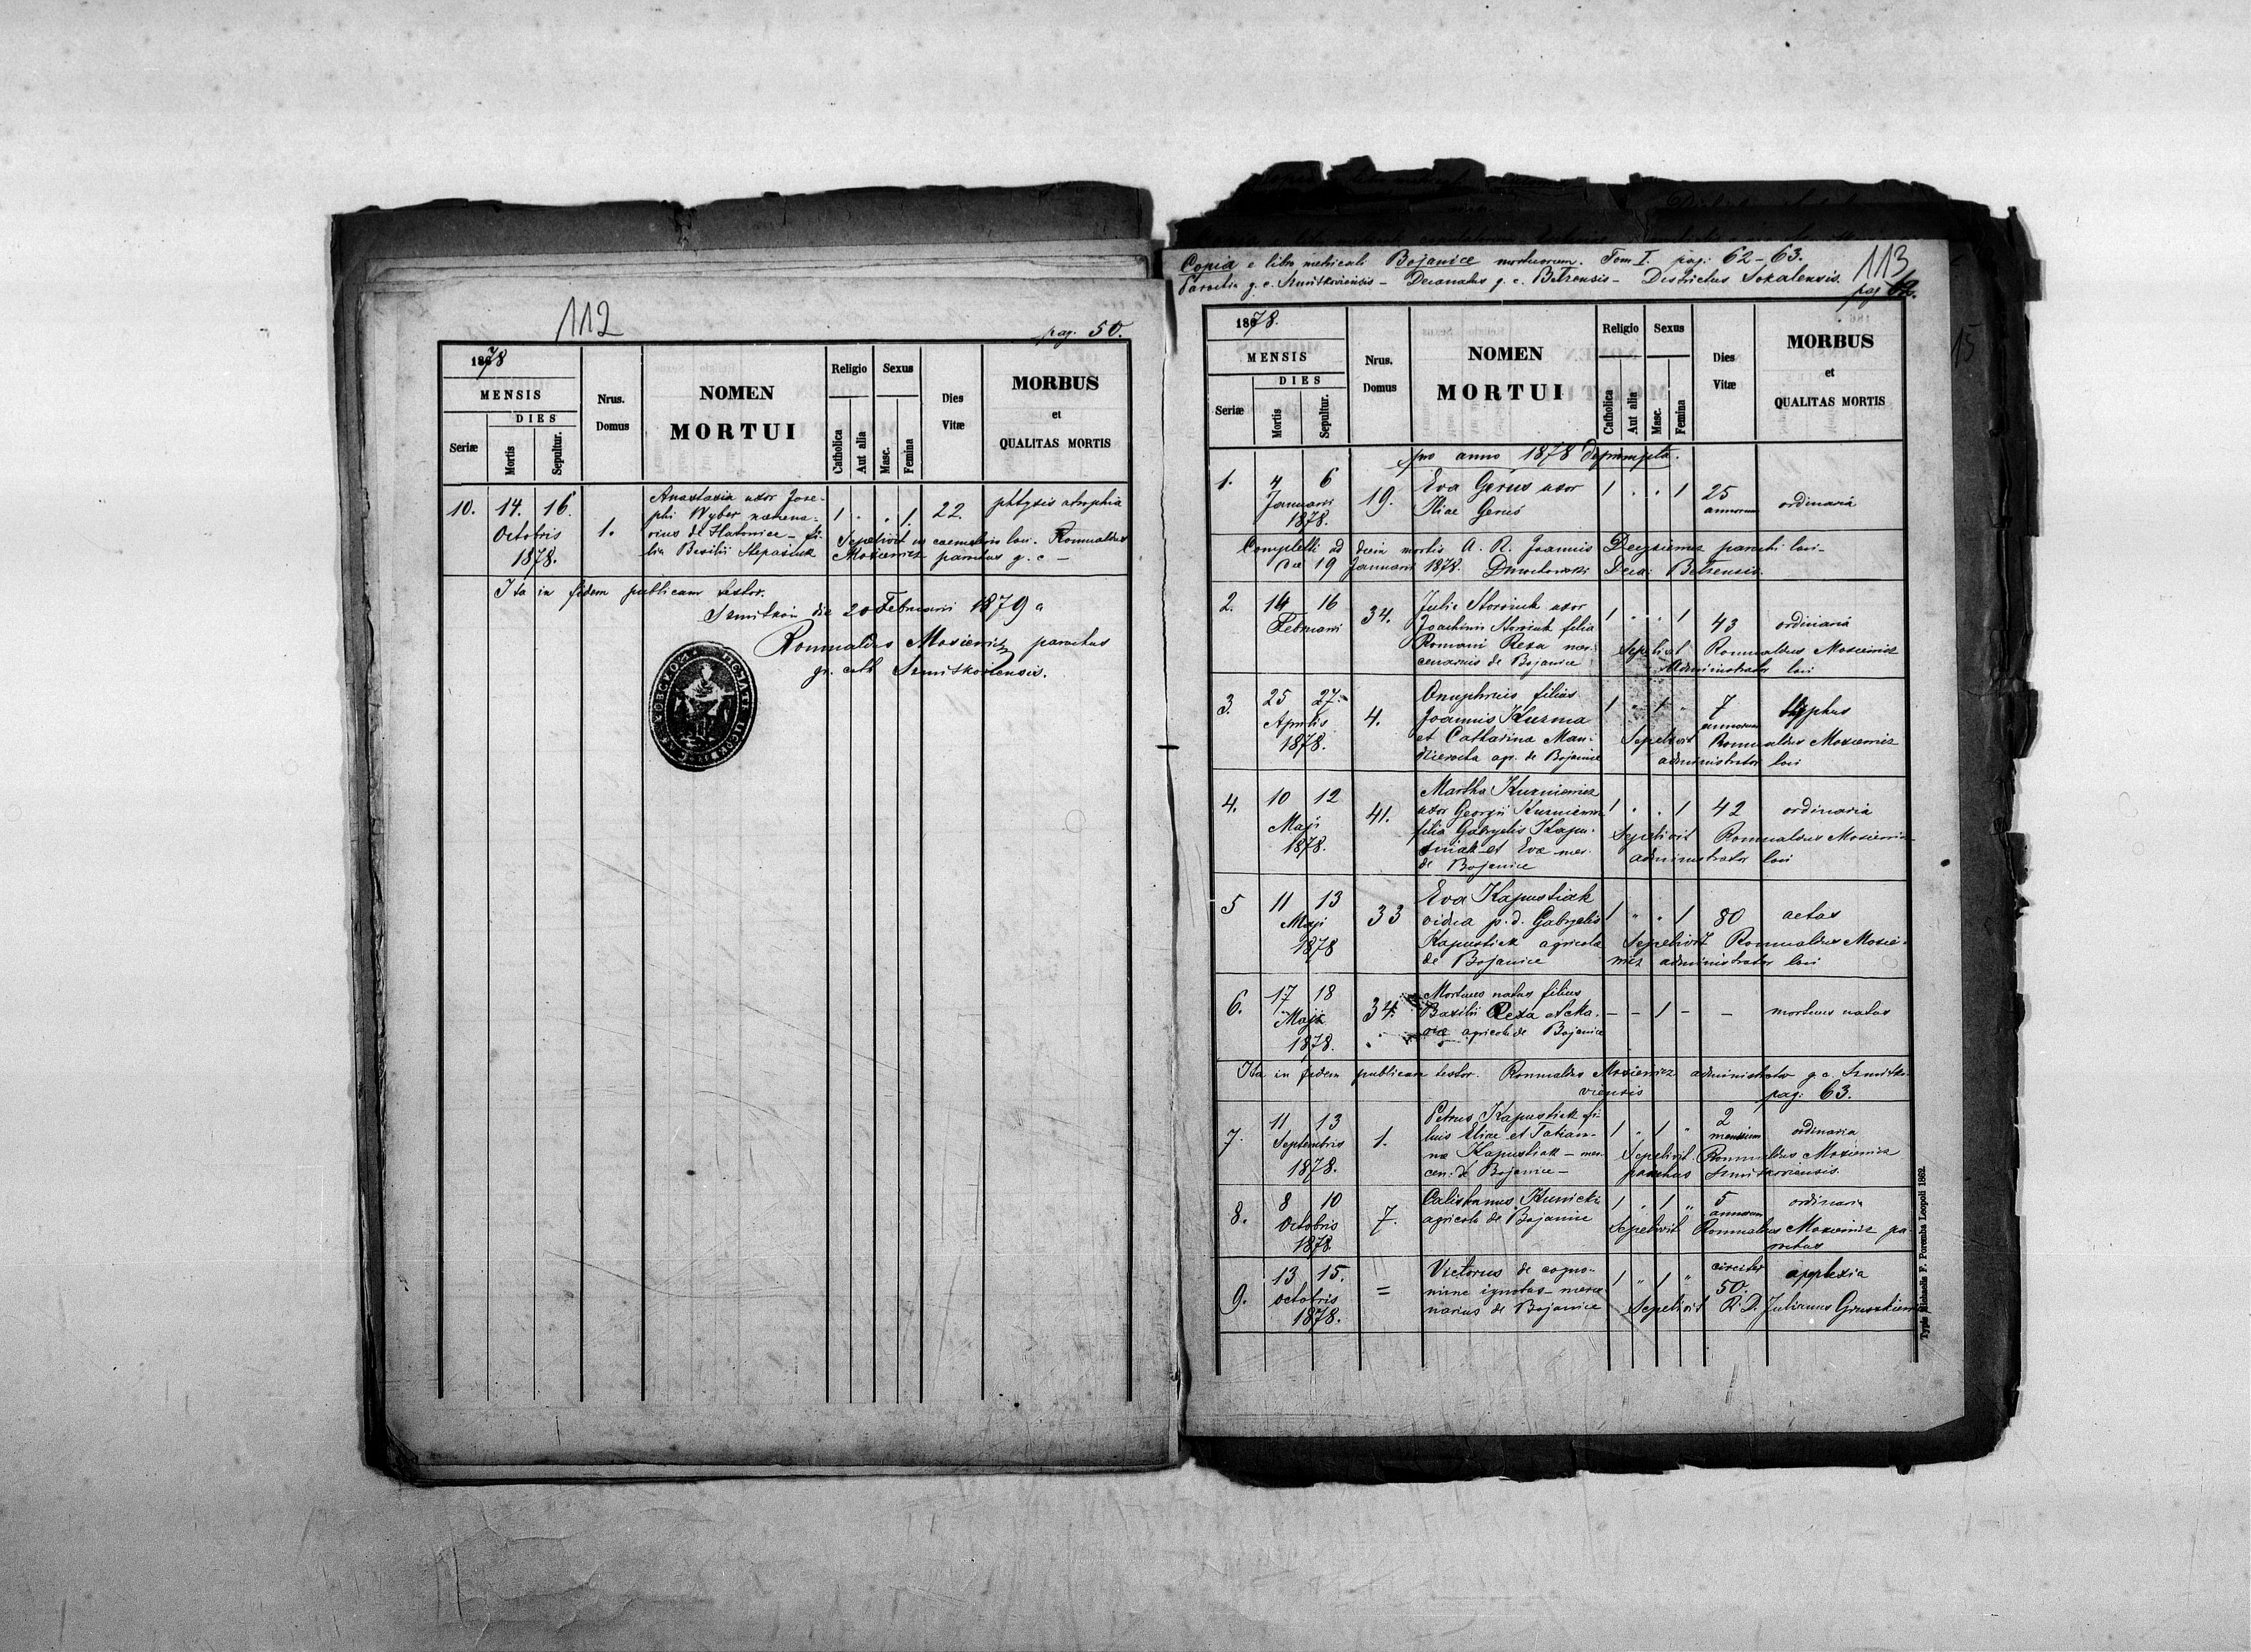 112
pag. 50.
1878
MENSIS
DIES
Seriæ
Mortis
Sepultur.
Nrus.
Domus
NOMEN
MORTUI
Religio
Catholica
Aut alia
Sexus
Masc.
Femina
Dies
Vitæ
MORBUS
et
QUALITAS MORTIS
10. 14. 16.
Octobris
1878.
1.
Anastasia uxor Jose-
phi Wyber
de filia Basilii Stepasiuk
1 . . 1. 22. phtysis atrophia
Sepelivit in caemeterio loci. Romualdus
Mosiewicz parochus g. c. –
Ita in fidem publicam testor.
die 20 Februarii 1879
Romualdus Mosiewicz parochus
gr. cath Szmitkoviensis.
Copia e libro metricali Bojanice mortuorum. Tom I. pag. 62-63.
Parochia g. c. Szmitkoviensis – Decanatus g. c. Belzensis – Districtus Sokalensis.
113
pag 62.
1878.
MENSIS
DIES
Seriæ
Mortis
Sepultur.
Nrus.
Domus
NOMEN
MORTUI
Religio
Catholica
Aut alia
Sexus
Masc.
Femina
Dies
Vitæ
MORBUS
et
QUALITAS MORTIS
pro anno 1878 deprompta.
1. 4 6
Januarii
1878.
19.
Eva Gerus uxor
Iliae Gerus
1 . . 1 25
annorum
ordinaria
Completti ad diem mortis A. R. Joannis parochi loci –
Die 19 Januarii 1878. Decan. Belzensis.
2. 14 16
Februarii
34.
Julia uxor
Joachimi filia
Romani Reza mer-
cenarius de Bojanice
1 . . 1 43 ordinaria
Sepelivit Romualdus Mosiewicz
Administrator loci
3. 25 27.
Aprilis
1878.
4.
Onuphrius filius
Joannis Kuzma
et Catharina
agr. de Bojanice
1 " 1 " 7
annorum
typhus
Sepelivit Romualdus Mosiewicz
administrator loci
4. 10 12
Maji
1878.
41.
Martha Kuzniewicz
uxor Georgii Kuzniewicz
filia Gabryelis Kapu-
stiak et Eva mer.
de Bojanice
1 . . 1 42 ordinaria
Sepelivit Romualdus Mosiewicz
administrator loci
5 11 13
Maji
1878
33
Eva Kapustiak
vidua p. d. Gabryelis
Kapustiak agricola
de Bojanice
1 " . 1 80 aetas
Sepelivit Romualdus Mosie-
wicz administrator loci
6. 17 18
Maji
1878.
34.
Mortuus natus filius
Basilii Reza et Ma-
riae agricola de Bojanice
– – 1 – – mortuus natus
Ita in fidem publicam testor. Romualdus Mosiewicz administrator g. c. Szmitko-
viensis
pag: 63.
7. 11 13
Septembris
1878.
1.
Petrus Kapustiak fi-
lius Eliae et Tatian-
nae Kapustiak – mer-
cen: de Bojanice –
1 . 1 " 2
mensium
ordinaria
Sepelivit Romualdus Mosiewicz
parochus Szmitkoviensis.
8. 8 10
Octobris
1878
7.
Calistranus Kunicki
agricola de Bojanice
1 " 1 " 5
annorum
ordinaria
Sepelivit Romualdus Mosiewicz pa-
rochus
9. 13 15.
octobris
1878.
=
Victorus de cogno-
mine ignotus – merce-
narius de Bojanice
1 " 1 " circiter
50.
apoplexia
Sepelivit R. D. Julianus
Typis Michaelis F. Poremba Leopoli 1862.
15